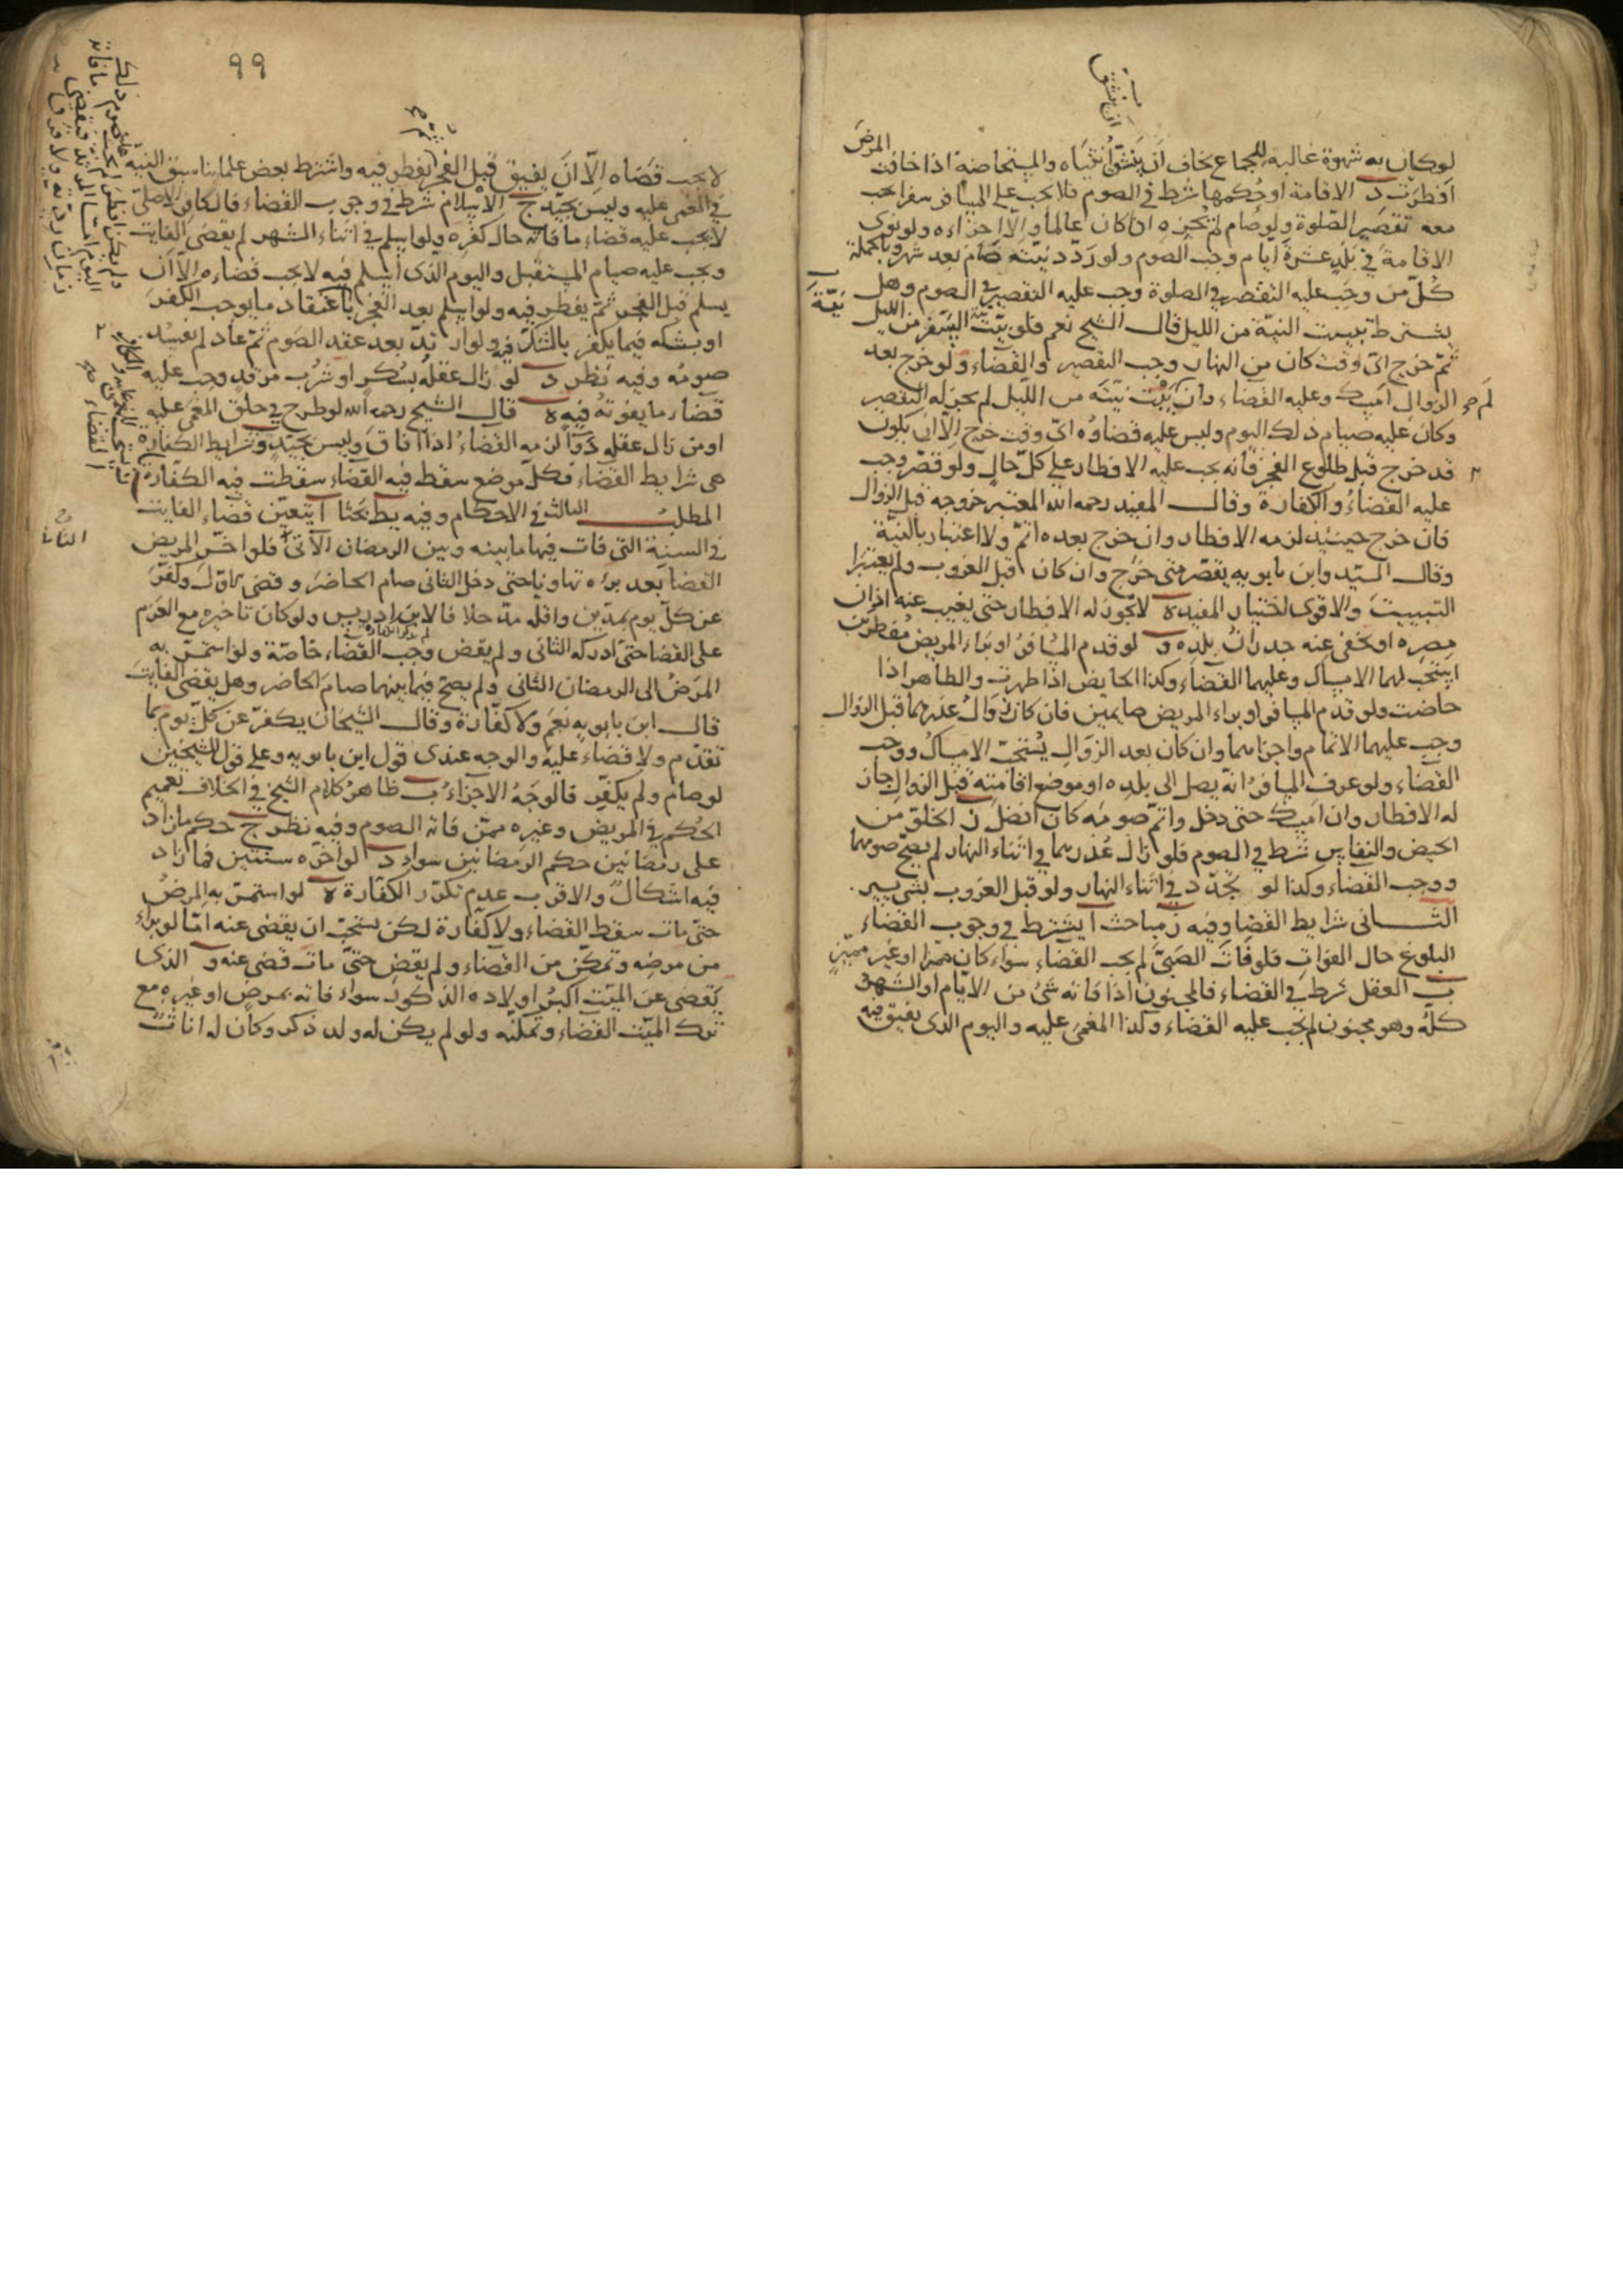 لو كان به شهوة غالبه للجماع يخاف ان ينشق انثياه والمستحاضة اذا خافت المرض
افطرت د الاقامة او حكمها شرط في الصوم فلا يجب على المسافر سفرا يجب
معه تقصير الصلوة ولو صام لم يجزه ان كان عالما والا اجزاءه ولو نوى
الاقامة في بلد عشرة ايام وجب الصوم ولو ردد نيته صام بعد شهر وبالجملة
كل من وجب عليه التقصير في الصلوة وجب عليه التقصير في الصوم وهل
يشترط تبييت النية من الليل قال الشيخ نعم فلو بيت نية السفر من الليل
ثم خرج اى وقت كان من النهار وجب التقصير والقضاء ولو خرج بعد
الزوال امسك وعليه القضاء وان لم يبيت نيته من الليل لم يجز له التقصير
وكان عليه صيام ذلك اليوم وليس عليه قضاؤه اى وقت خرج الا ان يكون
قد خرج قبل طلوع الفجر فانه يجب عليه الافطار على كل حال ولو قصر وجب
عليه القضاء والكفارة وقال المفيد رحمه الله المعتبر خروجه قبل الزوال
فان خرج حينئذ لزمه الافطار وان خرج بعده اتم ولا اعتبار بالنية
وقال السيد وابن بابويه يقصر متى خرج وان كان قبل الغروب ولم يعتبرا
التبييت والاقوى اختيار المفيد ه لا يجوز له الافطار حتى يغيب عنه اذان
مصره او يخفى عنه جدران بلده و لو قدم المسافر او براء المريض مفطرين
استحب لهما الامساك وعليهما القضاء وكذا الحايض اذا طهرت والطاهر اذا
حاضت ولو قدم المسافر او براء المريض صايمين فان كان زوال عذرهما قبل الزوال
وجب عليهما الاتمام واجزاهما وان كان بعد الزوال يستحب الامساك ووجب
القضاء ولو عرف المسافر انه يصل الى بلده او موضع اقامته قبل الزوال جاز
له الافطار وان امسك حتى دخل واتم صومه كان افضل ز الخلو من
الحيض والنفاس شرط في الصوم فلو زال عذرهما في اثناء النهار لم يصح صومهما
ووجب القضاء وكذا لو تجدد في اثناء النهار ولو قبل الغروب بشى يسير
الثانى شرايط القضا وفيه ز مباحث ا يشترط في وجوب القضاء
البلوغ حال الفوات فلو فات الصبى لم يجب القضاء سواء كان مميزا او غير مميز
ب العقل شرط في القضاء فالمجنون اذا فاته شئ من الايام او الشهر
كله وهو مجنون لم يجب عليه القضاء وكذا المغمى عليه واليوم الذى يفيق فيه
٩٩
لا يجب قضاه الا ان يفيق قبل الفجر ويفطر فيه واشترط بعض علمائنا سبق النية
في المغمى عليه وليس بجيد ج الاسلام شرط في وجوب القضاء فالكافر الاصلى
لا يجب عليه قضاء ما فاته حال كفره ولو اسلم في اثناء الشهر لم يقض الفايت
ويجب عليه صيام المستقبل واليوم الذى اسلم فيه لا يجب قضاءه الا ان
يسلم قبل الفجر ثم يفطر فيه ولو اسلم بعد الفجر باعتقاد ما يوجب الكفر
او بشكه فيما يكفر بالشك فيه ولو ارتد بعد عقد الصوم ثم عاد لم يفسد
صومه وفيه نظر د لو زال عقله بسكر او شرب مرقد وجب عليه
قضاء ما يفوته فيه ه قال الشيخ رحمه الله لو طرح في حلق المغمى عليه
او من زال عقله دواء لزمه القضاء اذا افاق وليس بجيد وشرايط الكفارة
هى شرايط القضاء فكل موضع سقط فيه القضاء سقطت فيه الكفارة
المطلب الثالث في الاحكام وفيه يط بحثا ا يتعين قضاء الفايت
في السنة التى فات فيها ما بينه وبين الرمضان الآتى فلو اخر المريض
القضا بعد برءه تهاونا حتى دخل الثانى صام الحاضر وقضى الاول وكفر
عن كل يوم بمدين واقله مد خلافا لابن ادريس ولو كان تاخيره مع العزم
على القضا حتى ادركه الثانى ولم يقض وجب القضاء خاصة ولو استمر به
المرض الى الرمضان الثانى ولم يصح فيما بينهما صام الحاضر وهل يقضى الفايت
قال ابن بابويه نعم ولا كفارة وقال الشيخان يكفر عن كل يوم بما
تقدم ولا قضاء عليه والوجه عندى قول ابن بابويه وعلى قول الشيخين
لو صام ولم يكفر فالوجه الاجزاء ب ظاهر كلام الشيخ في الخلاف تعميم
الحكم في المريض وغيره ممن فاته الصوم وفيه نظر ج حكم ما زاد
على رمضانين حكم الرمضانين سواء د لو اخره سنتين فما زاد
فيه اشكال والاقرب عدم تكرر الكفارة ه لو استمر به المرض
حتى مات سقط القضاء ولا كفارة لكن يستحب ان يقضى عنه اما لو براء
من مرضه وتمكن من القضاء ولم يقض حتى مات قضى عنه و الذى
يقضى عن الميت اكبر اولاده الذكور سواء فاته بمرض او غيره مع
ترك الميت القضاء وتمكنه ولو لم يكن له ولد ذكر وكان له اناث